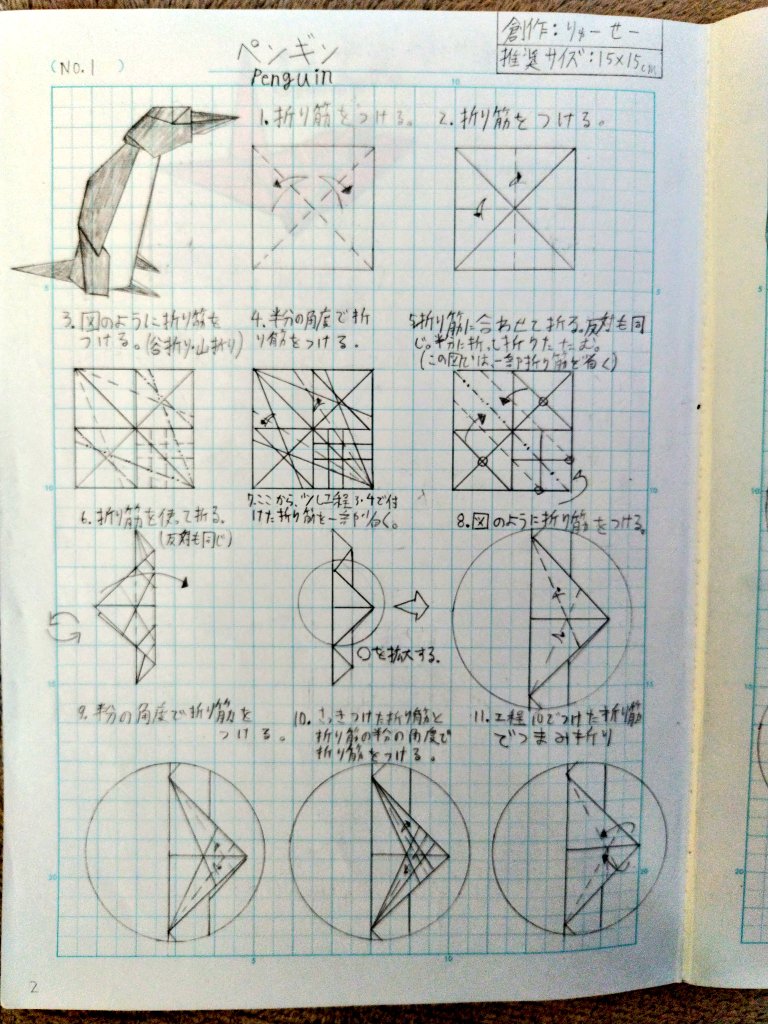 (NO.1 )
ペンギン
Penguin
創作:りゅーせー
推奨サイズ:15×15cm
1.折り筋をつける。
2.折り筋をつける。
3.図のように折り筋を
つける。(谷折り・山折り)
4.半分の角度で折
り筋をつける。
5.折り筋に合わせて折る。反対も同
じ。半分に折って折りたたむ。
(この図では、一部折り筋を省く)
6.折り筋を使って折る。
(反対も同じ)
7.ここから、少し工程3・4で付
けた折り筋を一部省く。
○を拡大する。
8.図のように折り筋をつける。
9.半分の角度で折り筋を
つける。
10.さっきつけた折り筋と
折り筋の半分の角度で
折り筋をつける。
11.工程10でつけた折り筋
でつまみ折り
5
10
5
10
15
20
5
10
10
15
20
20
2